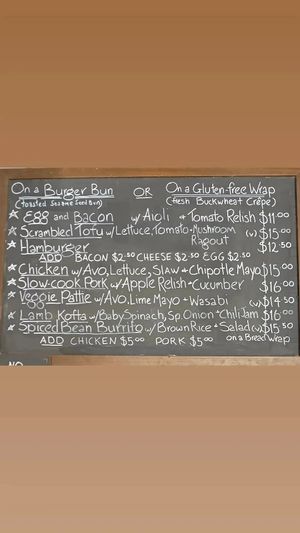 On a Burger Bun OR On a Gluten-free Wrap
(toasted Sesame Seed Bun) (fresh Buckwheat Crêpe)
★ Egg and Bacon w/ Aioli + Tomato Relish $11.00
★ Scrambled Tofu w/ Lettuce, Tomato-Mushroom Ragout (v) $15.00
★ Hamburger $12.50
ADD BACON $2.50 CHEESE $2.50 EGG $2.50
★ Chicken w/ Avo, Lettuce, Slaw + Chipotle Mayo $15.00
★ Slow-cook Pork w/ Apple Relish + Cucumber $16.00
★ Veggie Pattie w/ Avo, Lime Mayo + Wasabi (v) $14.50
★ Lamb Kofta w/ Baby Spinach, Sp. Onion + Chili Jam $16.00
★ Spiced Bean Burrito w/ Brown Rice + Salad (v) $15.50
ADD CHICKEN $5.00 PORK $5.00 on a Bread Wrap